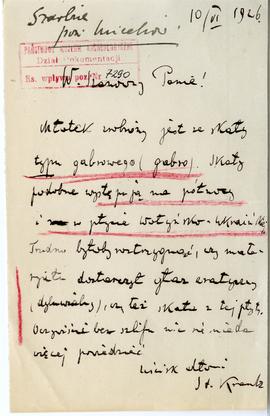 10/VI 1926.
pow. miechów
PAŃSTWOWE MUZEUM ARCHEOLOGICZNE
Dział Dokumentacji
Ks. wpływu poz. Nr 7290
W. Szanowny Panie!
Młotek zrobiony jest ze skały
typu gabrowego (gabro). Skały
podobne występują na północy
i w płycie Wołyńsko-Ukraińskiej.
Trudno byłoby rozstrzygnąć, czy
dostarczył głaz eratyczny
(dyluwialny), czy też skała z tej płyty.
Oczywiście bez szlifu nic nie da
więcej powiedzieć.
uścisk dłoni
St. Kreutz